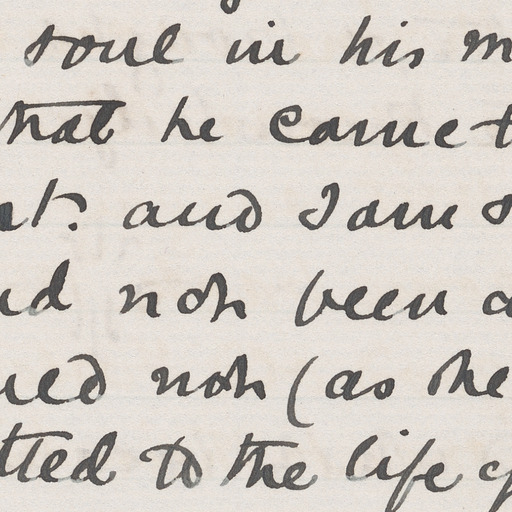 soul in his m
that he came t
nt. and I am s
nd not been a
ned not (as he
tted to the life of